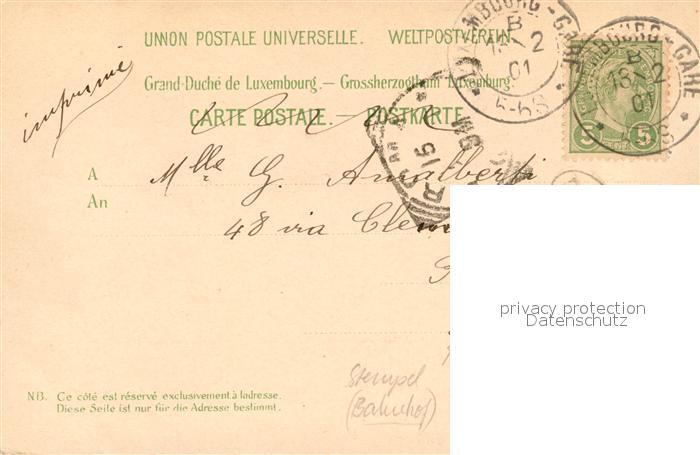 UNION POSTALE UNIVERSELLE. WELTPOSTVEREIN.
Grand-Duché de Luxembourg. — Grossherzogthum Luxemburg.
CARTE POSTALE. — POSTKARTE.
imprimé
LUXEMBOURG-GARE
B
18-2
01
5-6S
LUXEMBOURG-GARE
B
18-2
01
5 5
A Mlle G. Amalberti
An
48 via
privacy protection
Datenschutz
Stempel
(Bahnhof)
NB. Ce côté est réservé exclusivement à ladresse.
Diese Seite ist nur für die Adresse bestimmt.